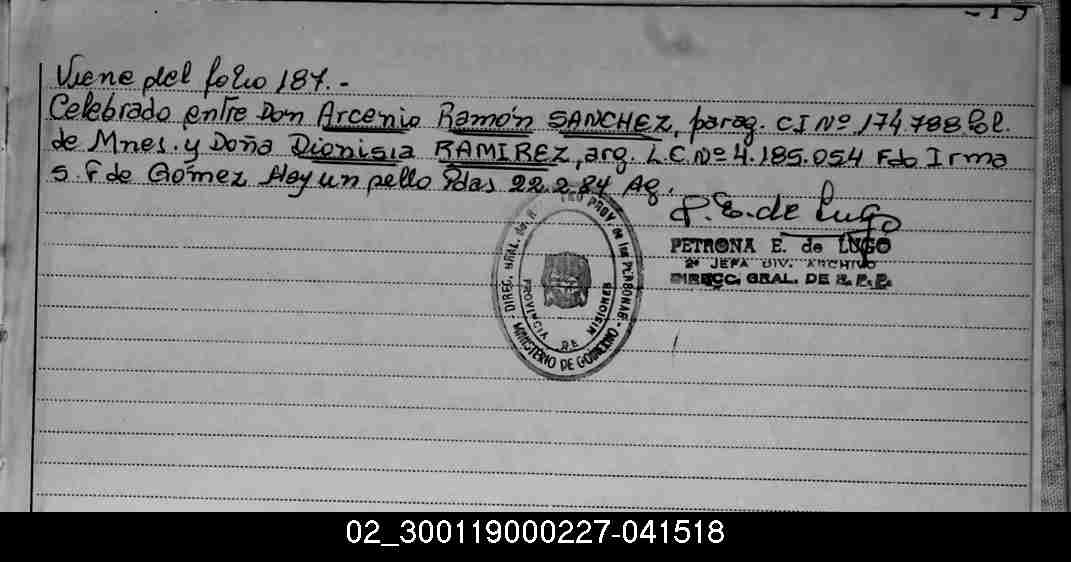 Viene del folio 187.-
Celebrado entre Don Arcenio Ramón SANCHEZ, parag. C I Nº 174.788 Pol.
de Mnes. y Doña Dionisia RAMIREZ, arg. L.C. Nº 4.185.054 Fdo Irma
S. F de Gómez Hay un sello Pdas 22.2.84 Ag.
P. E. de Lugo
PETRONA E. de LUGO
2ª JEFA DIV. ARCHIVO
DIRECC. GRAL. DE R. P. P.
DIREC. GRAL. del R
PROV. de las PERSONAS
PROVINCIA DE MISIONES
MINISTERIO DE GOBIERNO
02_300119000227-041518